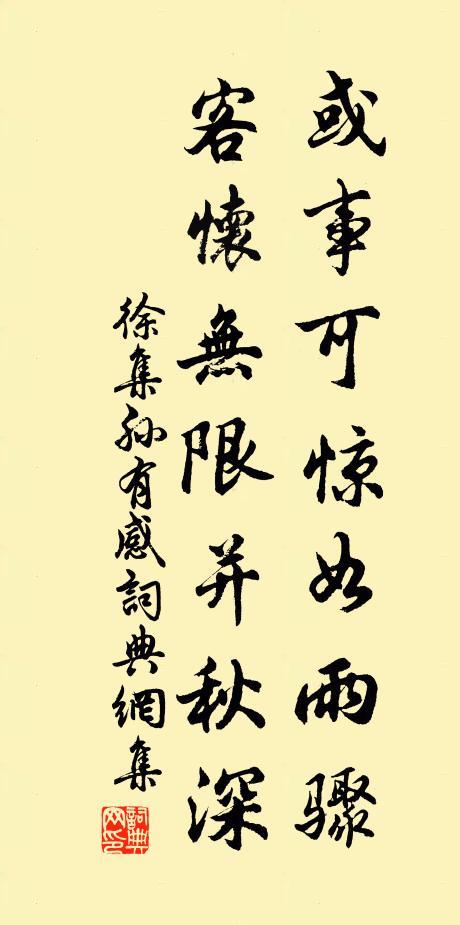 或事可惊如雨驟
客懷無限并秋深
徐集孙有感詞典網集
詞典
网印